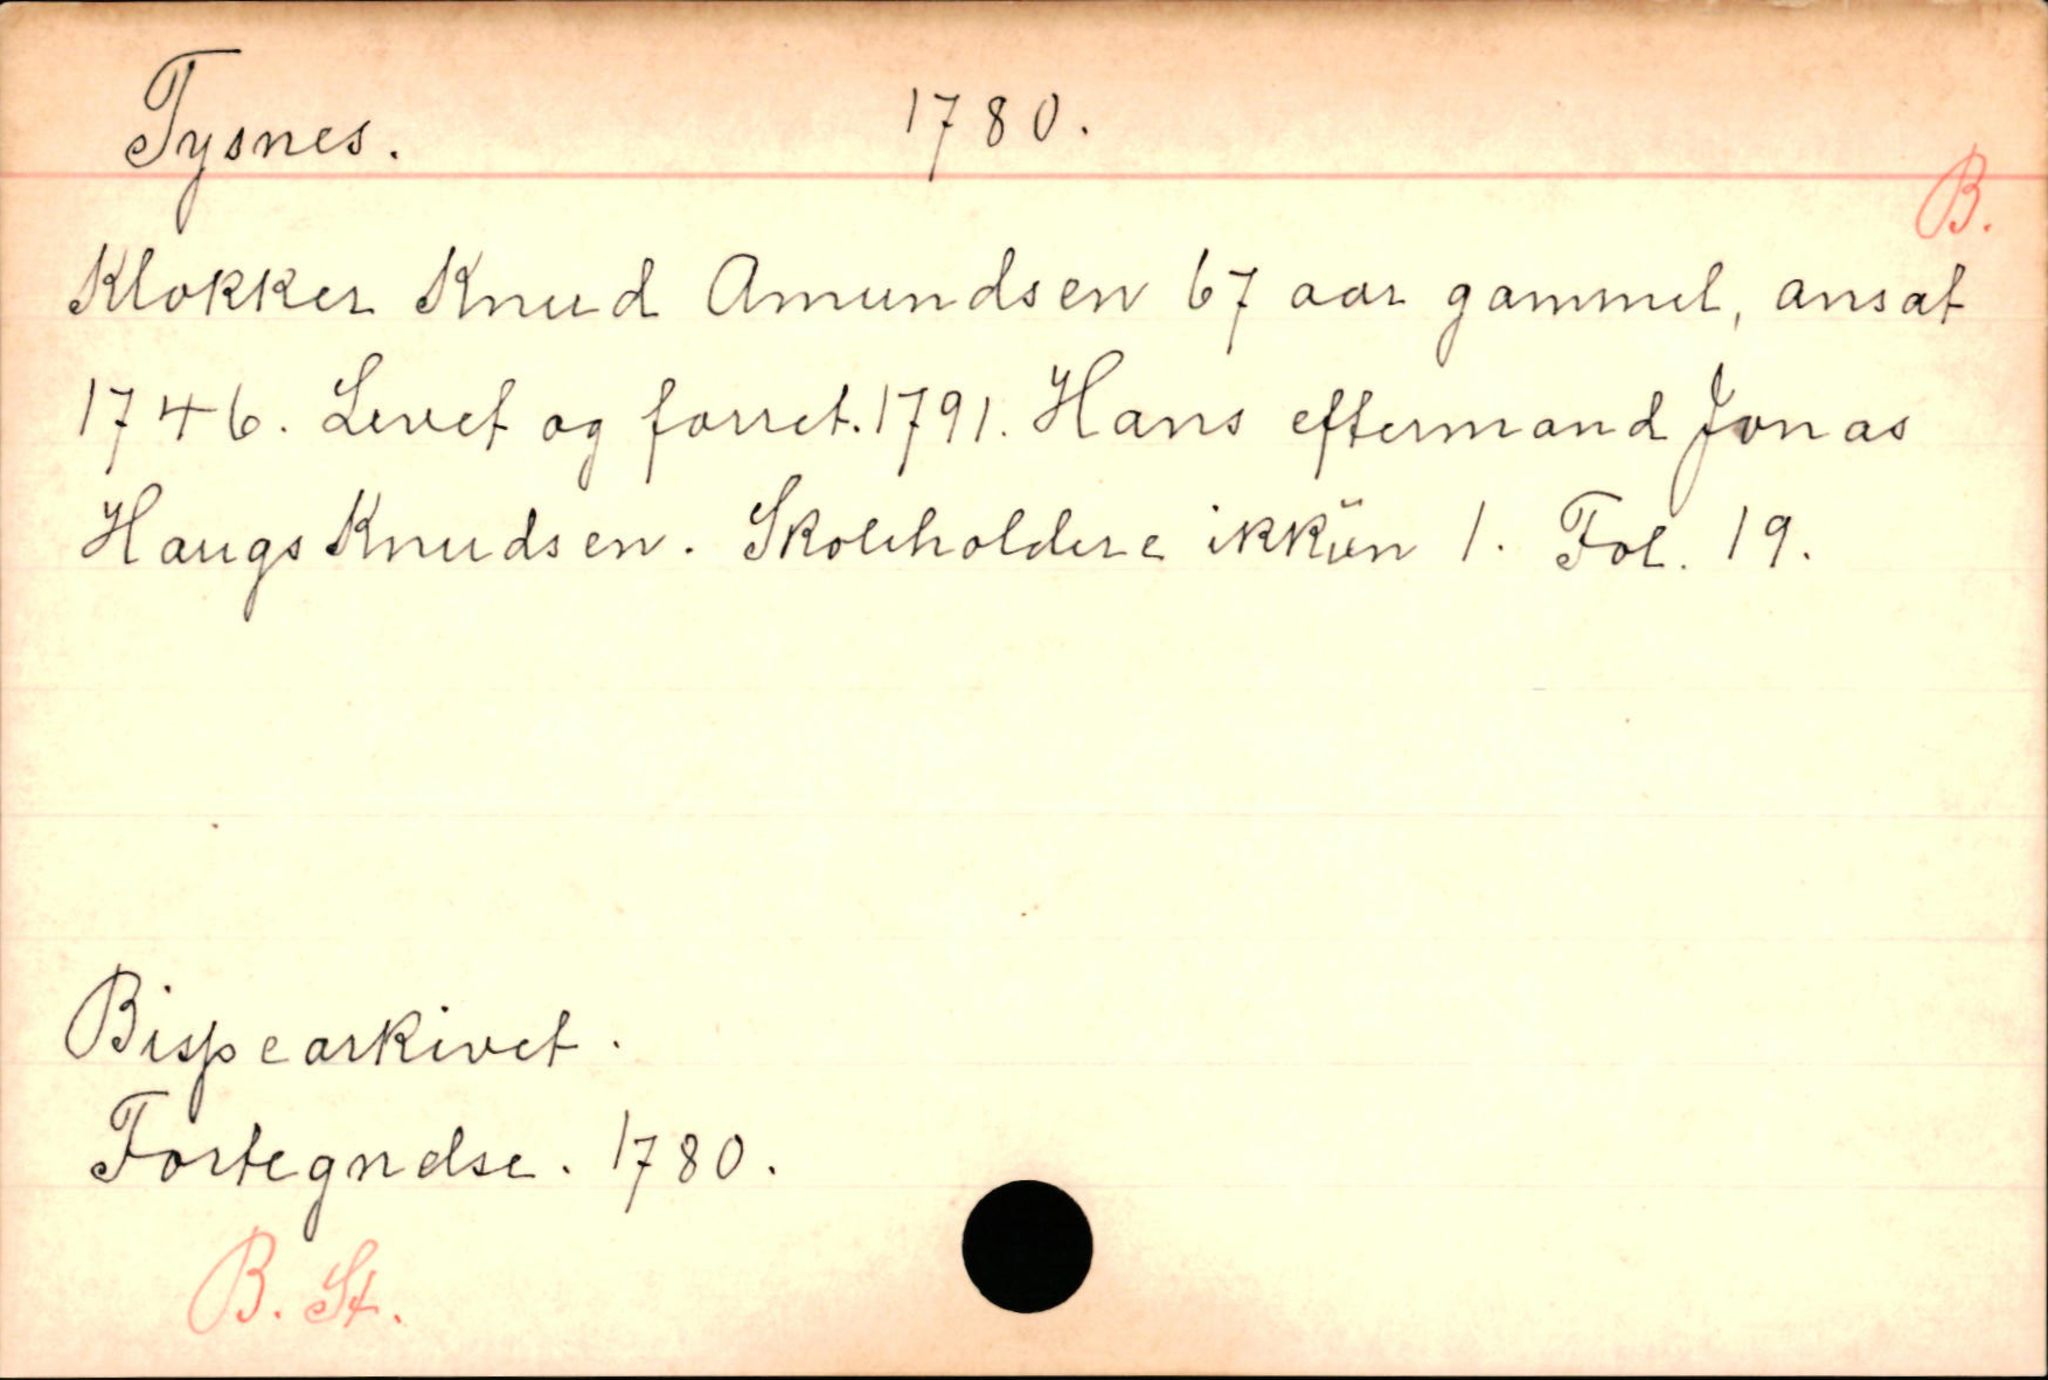 Tysnes. 1780.
B.
Klokker Knud Amundsen 67 aar gammel, ansat
1746. Levet og forret. 1791. Hans eftermand Jonas
Haugs Knudsen. Skoleholdere ikkün 1. Fol. 19.
Bispearkivet.
Fortegnelse. 1780.
B. St.